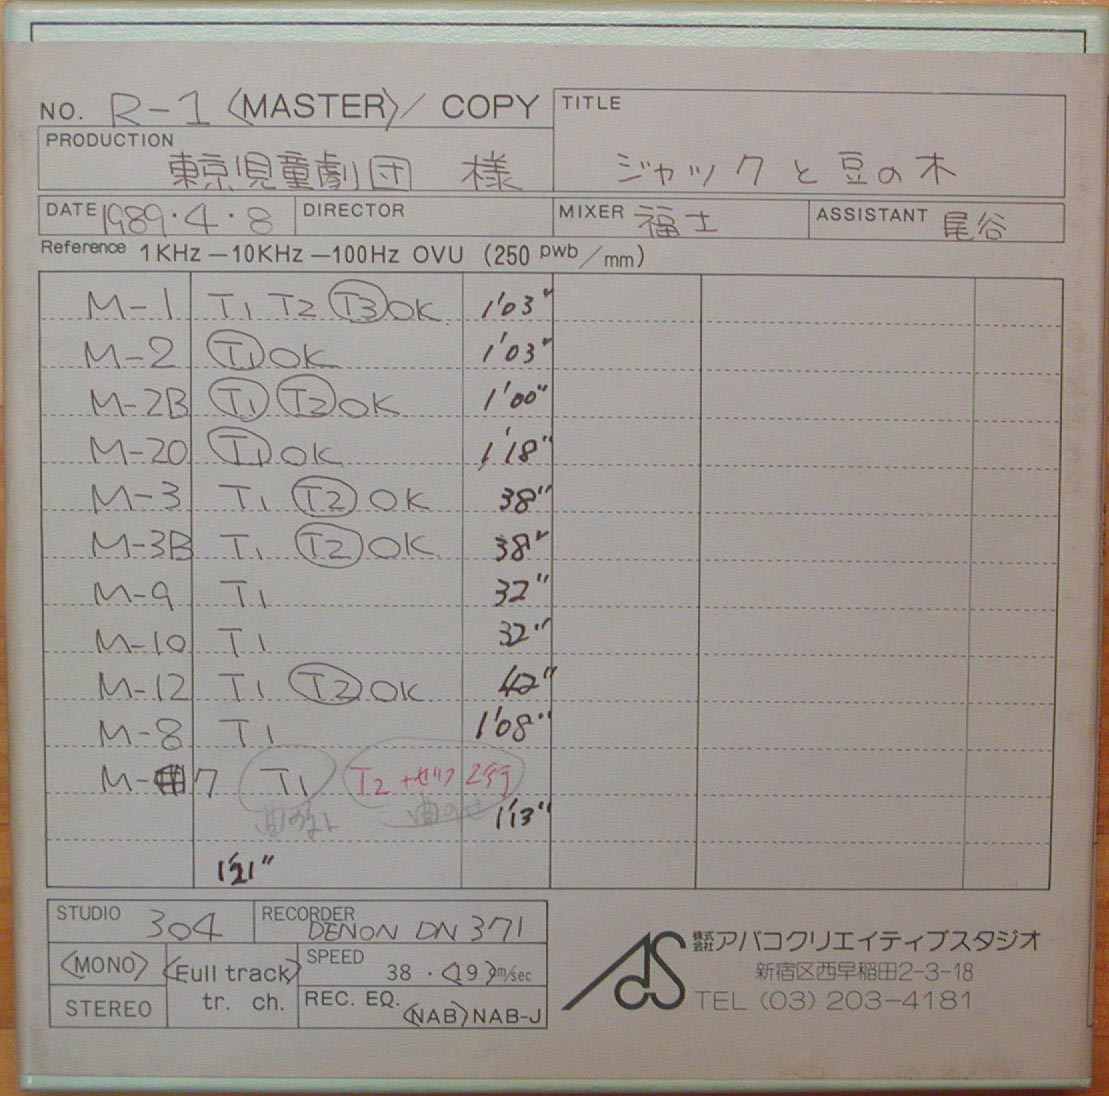 NO. R-1 〈MASTER〉/ COPY
TITLE
ジャックと豆の木
PRODUCTION
東京児童劇団 様
DATE 1989.4.8 DIRECTOR MIXER 福士 ASSISTANT 尾谷
Reference 1KHz—10KHz—100Hz OVU (250 pwb/mm)
M-1 T1 T2 T3 OK 1'03"
M-2 T1 OK 1'03"
M-2B T1 T2 OK 1'00"
M-20 T1 OK 1'18"
M-3 T1 T2 OK 38"
M-3B T1 T2 OK 38"
M-9 T1 32"
M-10 T1 32"
M-12 T1 T2 OK 42"
M-8 T1 1'08"
M-7 T1 T2 +セリフ 2行
1'13"
1'21"
STUDIO 304 RECORDER DENON DN 371
〈MONO〉 〈Full track〉 SPEED 38 ・〈19〉m/sec
STEREO tr. ch. REC. EQ. 〈NAB〉 NAB-J
ADS 株式会社 アバコクリエイティブスタジオ
新宿区西早稲田2-3-18
TEL (03) 203-4181